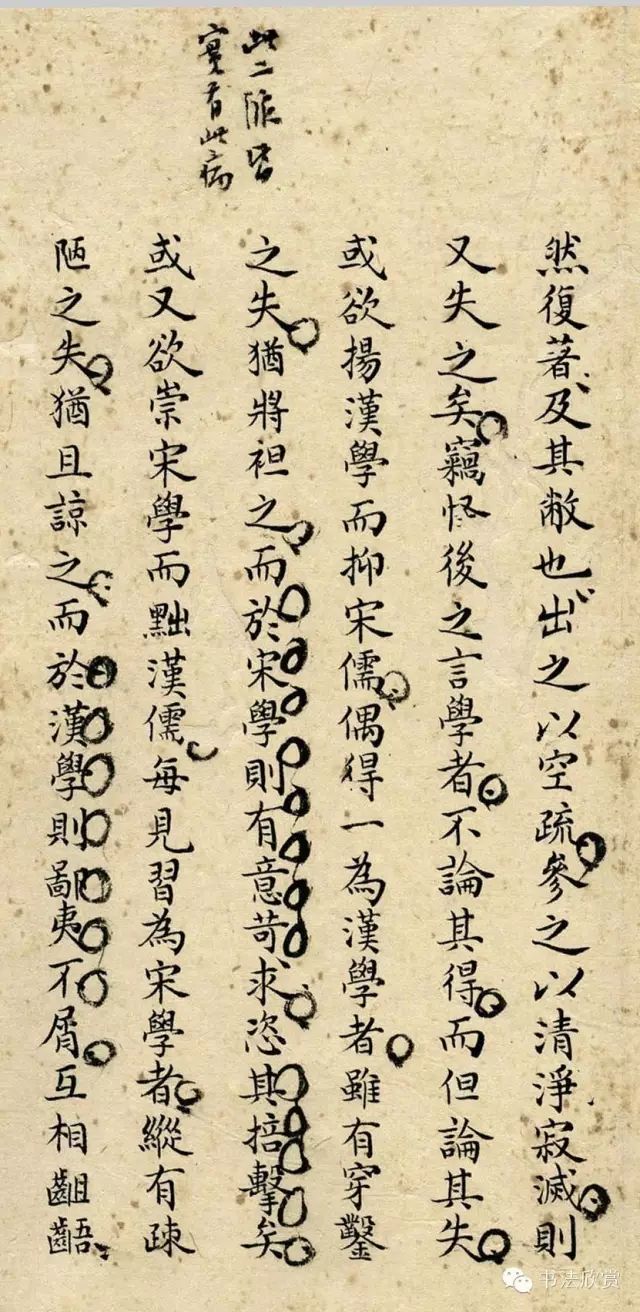 此二派皆
實有此病
然復著及其敝也出之以空疏參之以清淨寂滅則
又失之矣竊怪後之言學者不論其得而但論其失
或欲揚漢學而抑宋儒偶得一為漢學者雖有穿鑿
之失猶將袒之而於宋學則有意苛求恣其掊擊矣
或又欲崇宋學而黜漢儒每見習為宋學者縱有疎
陋之失猶且諒之而於漢學則鄙夷不屑互相齟齬
书法欣赏